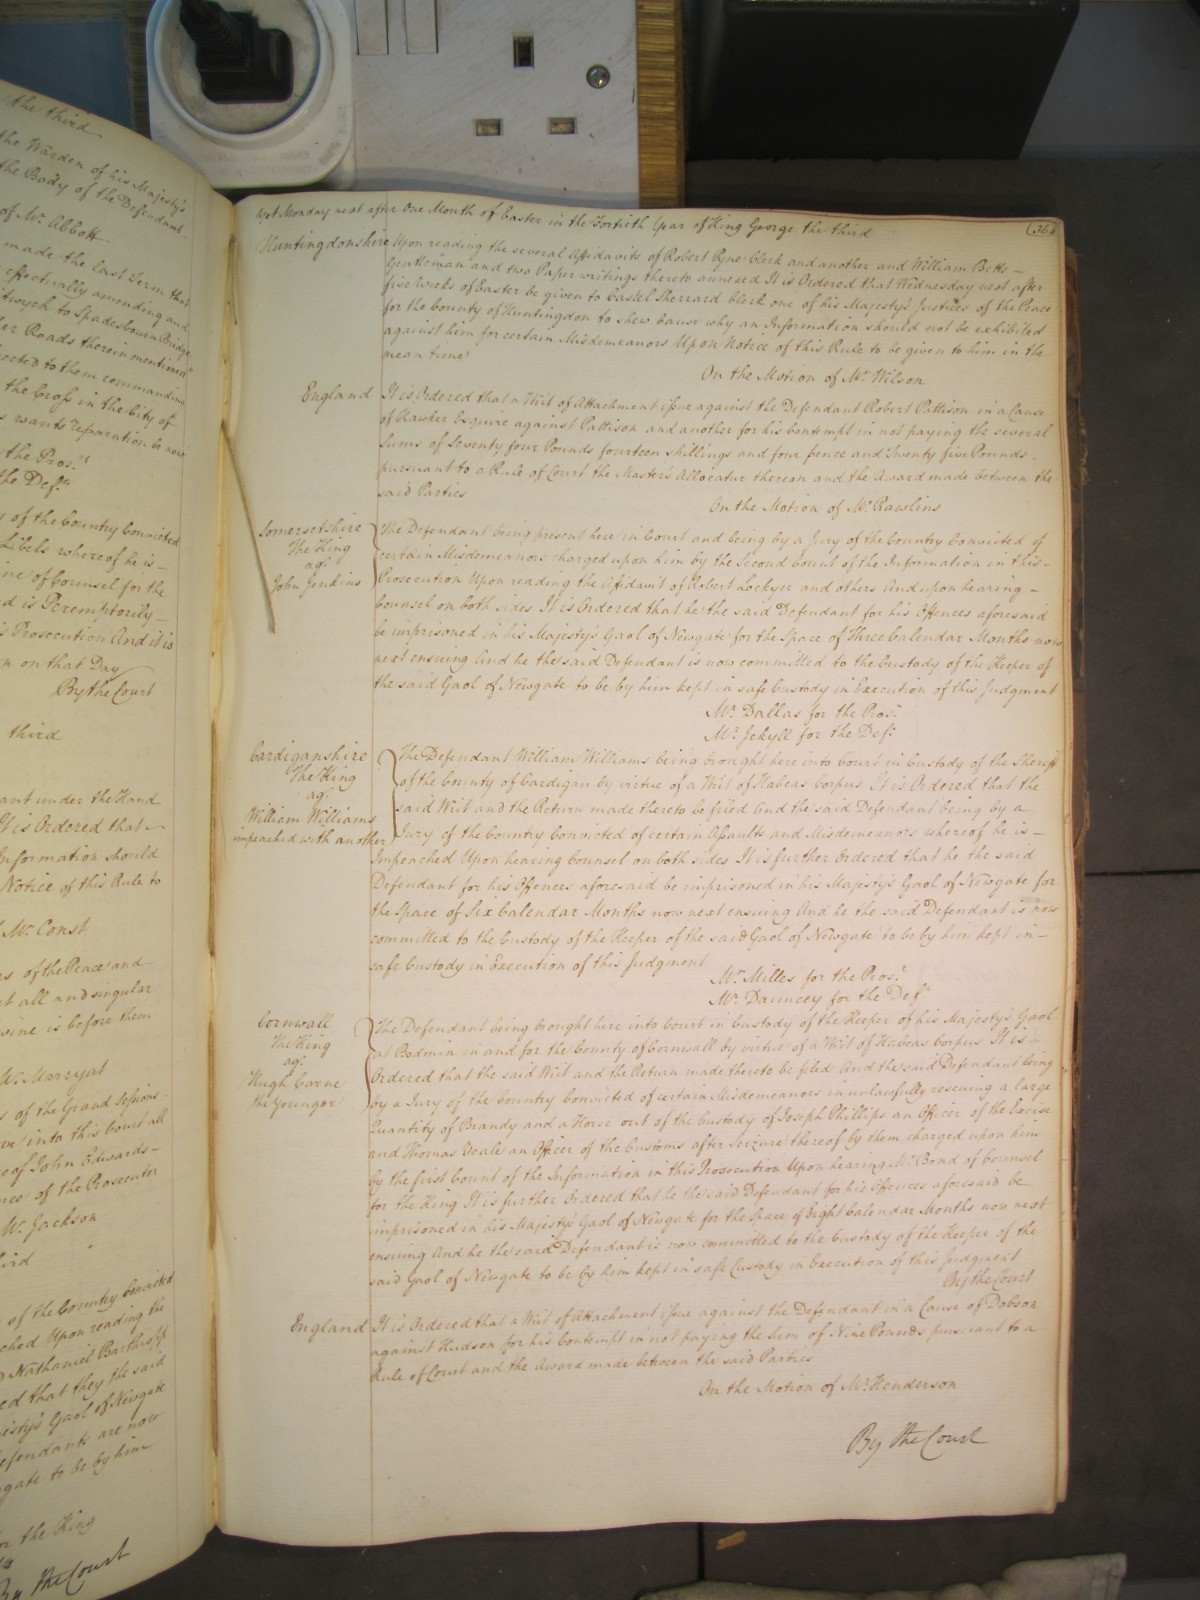 the third
the Warden of his Majesty's
the Body of the Defendant
of Mr. Abbott
made the last Term that
effectually amending and
to Spadesbourn Bridge
Roads therein mentioned
to them commanding
the Cross in the City of
wants reparation be now
the Pros.r
the Def.t
of the Country Convicted
Libels whereof he is
of Counsel for the
is Peremptorily
Prosecution And it is
on that Day
By the Court
third
under the Hand
It is Ordered that
Information should
Notice of this Rule to
Mr. Const
of the Peace and
all and singular
is before them
W. Marryat
of the Grand Sessions
into this Court all
of John Edwards
of the Prosecutor
Mr. Jackson
of the Country Convicted
Upon reading the
Nathaniel
that they the said
Majesty's Gaol of Newgate
Defendants are now
to be by him
the King
By the Court
Yet Monday next after One Month of Easter in the Fortieth Year of King George the third
Huntingdonshire Upon reading the several Affidavits of Robert Pyne Clerk and another and William Betts
Gentleman and two Paper writings thereto annexed It is Ordered that Wednesday next after
five weeks of Easter be given to Castel Sherrard Clerk one of his Majesty's Justices of the Peace
for the County of Huntingdon to shew Cause why an Information should not be exhibited
against him for certain Misdemeanors Upon Notice of this Rule to be given to him in the
mean time
On the Motion of Mr. Wilson
England It is Ordered that a Writ of Attachment issue against the Defendant Robert Pattison in a Cause
of Hawker Esquire against Pattison and another for his Contempt in not paying the several
Sums of Seventy four Pounds fourteen shillings and four pence and Twenty five Pounds
pursuant to a Rule of Court the Master's Allocatur thereon and the Award made between the
said Parties
On the Motion of Mr. Rawlins
Somersetshire
The King
ag.t
John Jenkins
The Defendant being present here in Court and being by a Jury of the Country Convicted of
certain Misdemeanors charged upon him by the Second Count of the Information in this
Prosecution Upon reading the Affidavit of Robert Lockyer and others And upon hearing
Counsel on both sides It is Ordered that he the said Defendant for his Offences aforesaid
be imprisoned in his Majesty's Gaol of Newgate for the Space of Three Calendar Months now
next ensuing And he the said Defendant is now committed to the Custody of the Keeper of
the said Gaol of Newgate to be by him kept in safe Custody in Execution of this Judgment
Mr. Dallas for the Pros.r
Mr. Jekyll for the Def.t
Cardiganshire
The King
ag.t
William Williams
impeached with another
The Defendant William Williams being brought here into Court in Custody of the Sheriff
of the County of Cardigan by virtue of a Writ of Habeas Corpus It is Ordered that the
said Writ and the Return made thereto be filed And the said Defendant being by a
Jury of the Country Convicted of certain Assaults and Misdemeanors whereof he is
Impeached Upon hearing Counsel on both sides It is further Ordered that he the said
Defendant for his Offences aforesaid be imprisoned in his Majesty's Gaol of Newgate for
the Space of Six Calendar Months now next ensuing And he the said Defendant is now
committed to the Custody of the Keeper of the said Gaol of Newgate to be by him kept in
safe Custody in Execution of this Judgment
Mr. Milles for the Pros.r
Mr. Dauncey for the Def.t
Cornwall
The King
ag.t
Hugh Carne
the Younger
The Defendant being brought here into Court in Custody of the Keeper of his Majesty's Gaol
at Bodmin in and for the County of Cornwall by virtue of a Writ of Habeas Corpus It is
Ordered that the said Writ and the Return made thereto be filed And the said Defendant being
by a Jury of the Country Convicted of certain Misdemeanors in unlawfully rescuing a large
Quantity of Brandy and a Horse out of the Custody of Joseph Phillips an Officer of the Excise
and Thomas Veale an Officer of the Customs after Seizure thereof by them charged upon him
by the first Count of the Information in this Prosecution Upon hearing Mr. Bond of Counsel
for the King It is further Ordered that he the said Defendant for his Offences aforesaid be
imprisoned in his Majesty's Gaol of Newgate for the Space of Eight Calendar Months now next
ensuing And he the said Defendant is now committed to the Custody of the Keeper of the
said Gaol of Newgate to be by him kept in safe Custody in Execution of this Judgment
By the Court
England It is Ordered that a Writ of Attachment issue against the Defendant in a Cause of Dobson
against Hudson for his Contempt in not paying the Sum of Nine Pounds pursuant to a
Rule of Court and the Award made between the said Parties
On the Motion of Mr. Henderson
By the Court